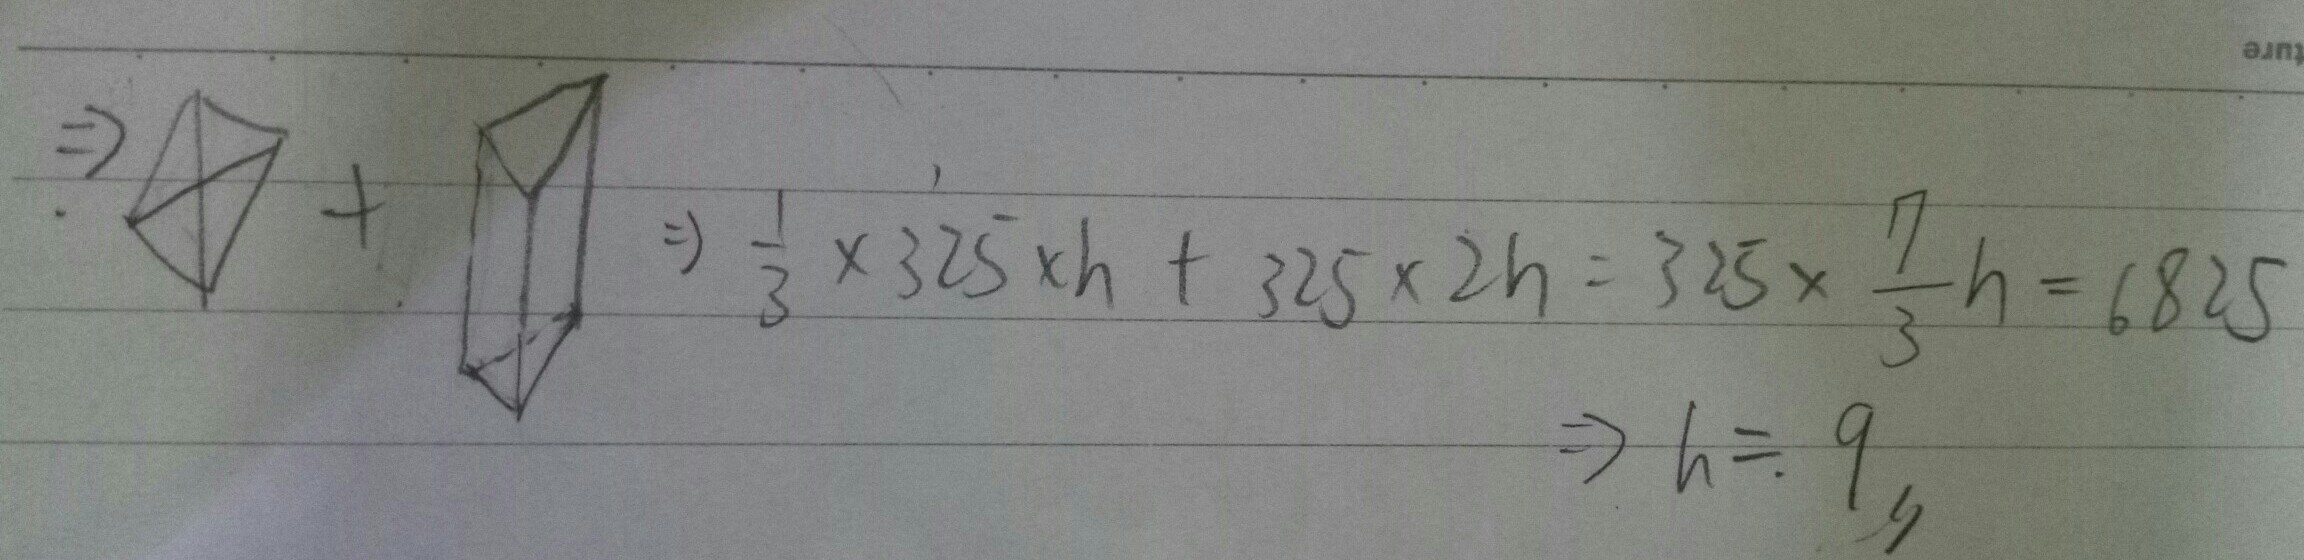 ture
⇒ + ⇒ 1/3 × 325 × h + 325 × 2h = 325 × 7/3 h = 6825
⇒ h = 9